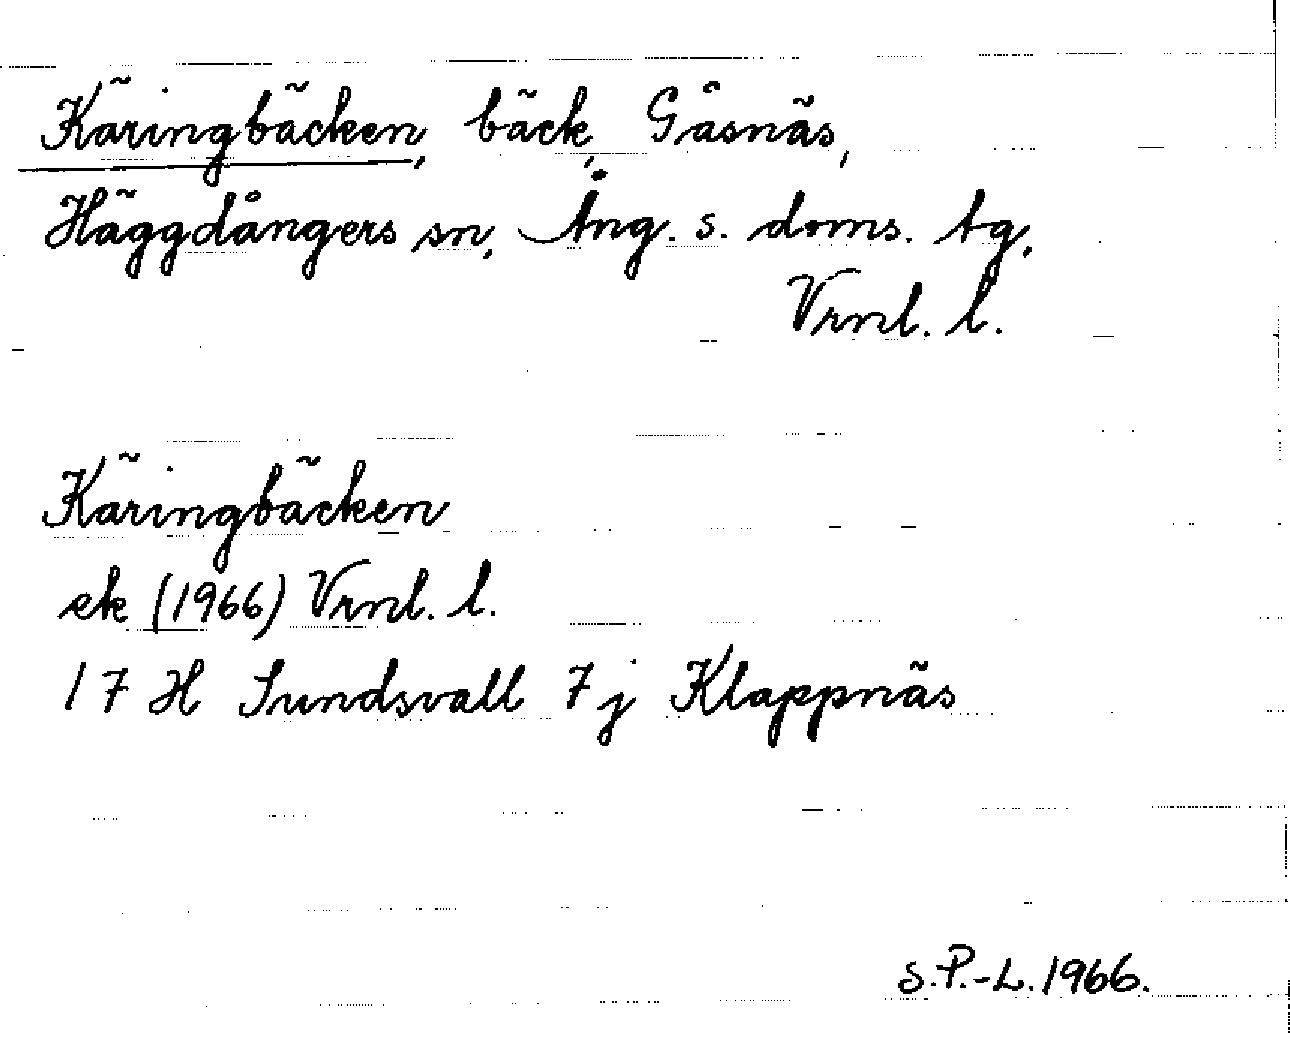 Käringbäcken, bäck, Gåsnäs,
Häggdångers sn, Ång. s. doms. tg,
Vrnl. l.
Käringbäcken
ek (1966) Vrnl. l.
17 H Sundsvall 7j Klappnäs
S.P.-L. 1966.